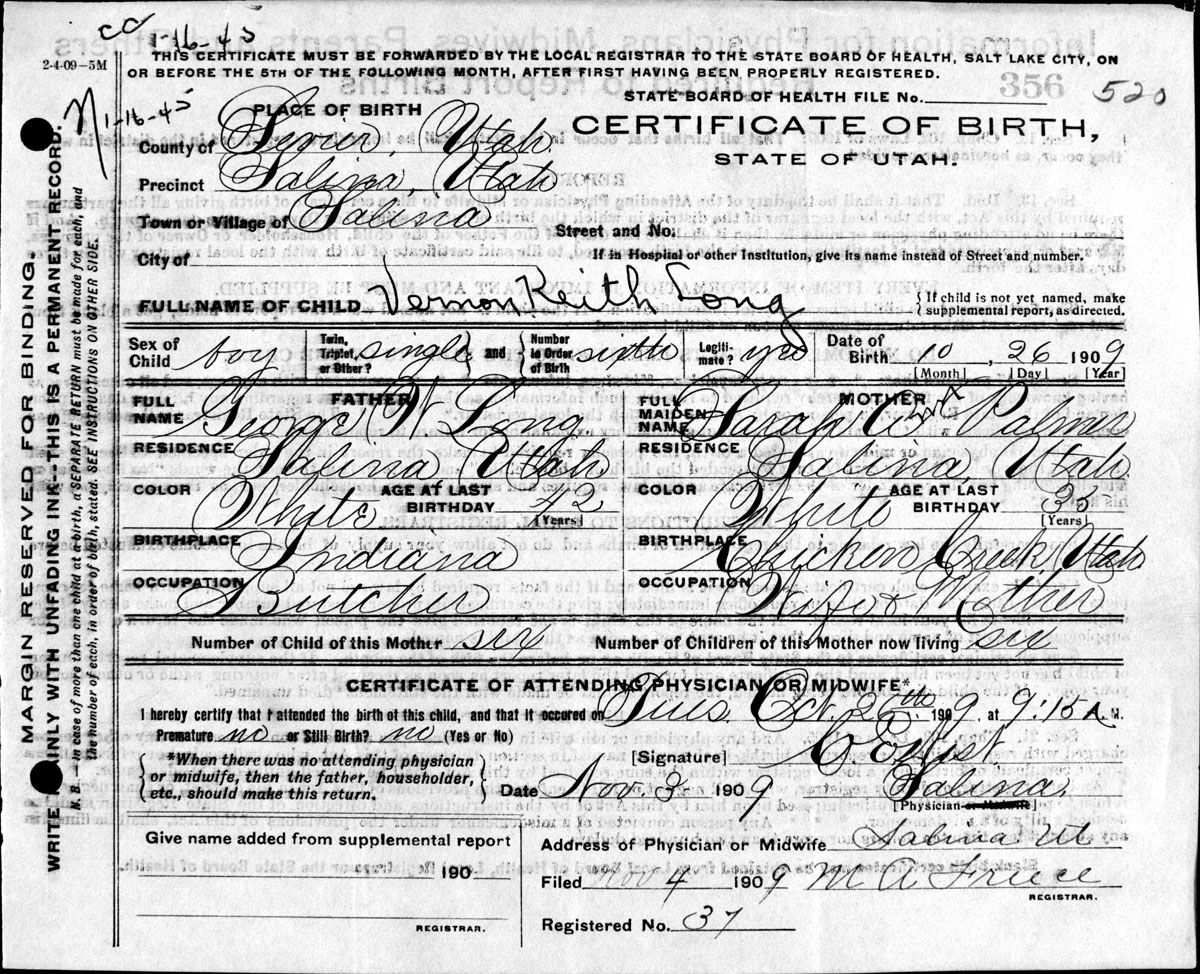 cc 1-16-45
THIS CERTIFICATE MUST BE FORWARDED BY THE LOCAL REGISTRAR TO THE STATE BOARD OF HEALTH, SALT LAKE CITY, ON
2-4-09—5M
OR BEFORE THE 5TH OF THE FOLLOWING MONTH, AFTER FIRST HAVING BEEN PROPERLY REGISTERED.
STATE BOARD OF HEALTH FILE No. 356 520
N 1-16-45
PLACE OF BIRTH
CERTIFICATE OF BIRTH,
STATE OF UTAH.
County of Sevier, Utah
Precinct Salina, Utah
Town or Village of Salina Street and No.
City of If in Hospital or other Institution, give its name instead of Street and number.
FULL NAME OF CHILD Vernon Keith Long { If child is not yet named, make supplemental report, as directed.
Sex of Child boy Twin, Triplet, or Other? single and Number in Order of Birth sixth Legitimate? yes Date of Birth 10, 26 1909
[Month] [Day] [Year]
FATHER MOTHER
FULL NAME George W Long FULL MAIDEN NAME Sarah Palmer
RESIDENCE Salina Utah RESIDENCE Salina, Utah.
COLOR White AGE AT LAST BIRTHDAY 42 [Years] COLOR White AGE AT LAST BIRTHDAY 35 [Years]
BIRTHPLACE Indiana BIRTHPLACE Chicken Creek, Utah
OCCUPATION Butcher OCCUPATION Wife & Mother
Number of Child of this Mother six Number of Children of this Mother now living six
CERTIFICATE OF ATTENDING PHYSICIAN OR MIDWIFE*
I hereby certify that I attended the birth of this child, and that it occured on Tues. Oct. 26th 1909 at 9:15 A. M.
Premature no or Still Birth? no (Yes or No)
[Signature]
{ *When there was no attending physician or midwife, then the father, householder, etc., should make this return. }
Date Nov 3 1909 Salina.
[Physician or Midwife]
Give name added from supplemental report
190
REGISTRAR.
Address of Physician or Midwife Salina Ut
Filed Nov 4 1909
REGISTRAR.
Registered No. 37
MARGIN RESERVED FOR BINDING.
WRITE PLAINLY WITH UNFADING INK--THIS IS A PERMANENT RECORD.
N. B.—In case of more than one child at a birth, a SEPARATE RETURN must be made for each, and
the number of each, in order of birth, stated. SEE INSTRUCTIONS ON OTHER SIDE.